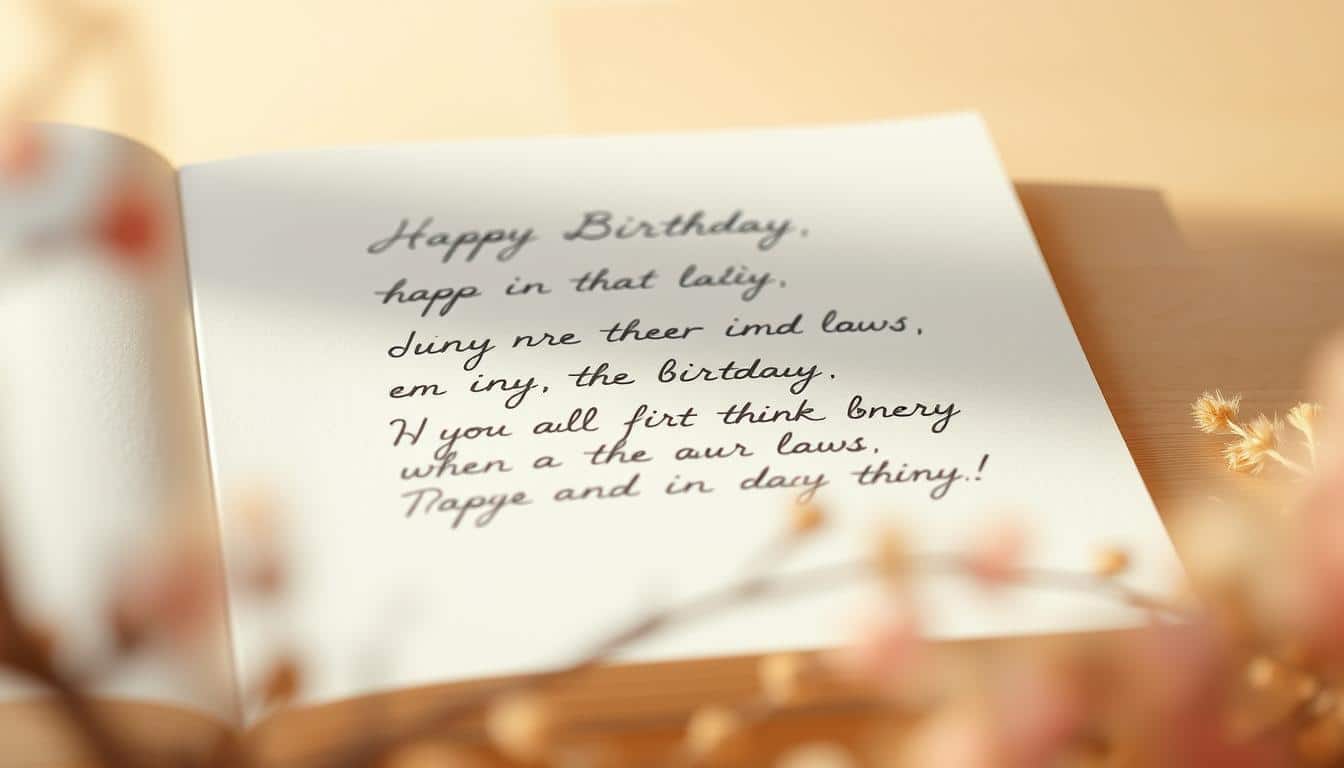 Happy Birthday,
happ in that laliy,
duny nre theer imd laws,
em iny, the birtdauy.
H you aull firt think bnery
when a the aur laws,
Tlapye and in dacy thiny.!